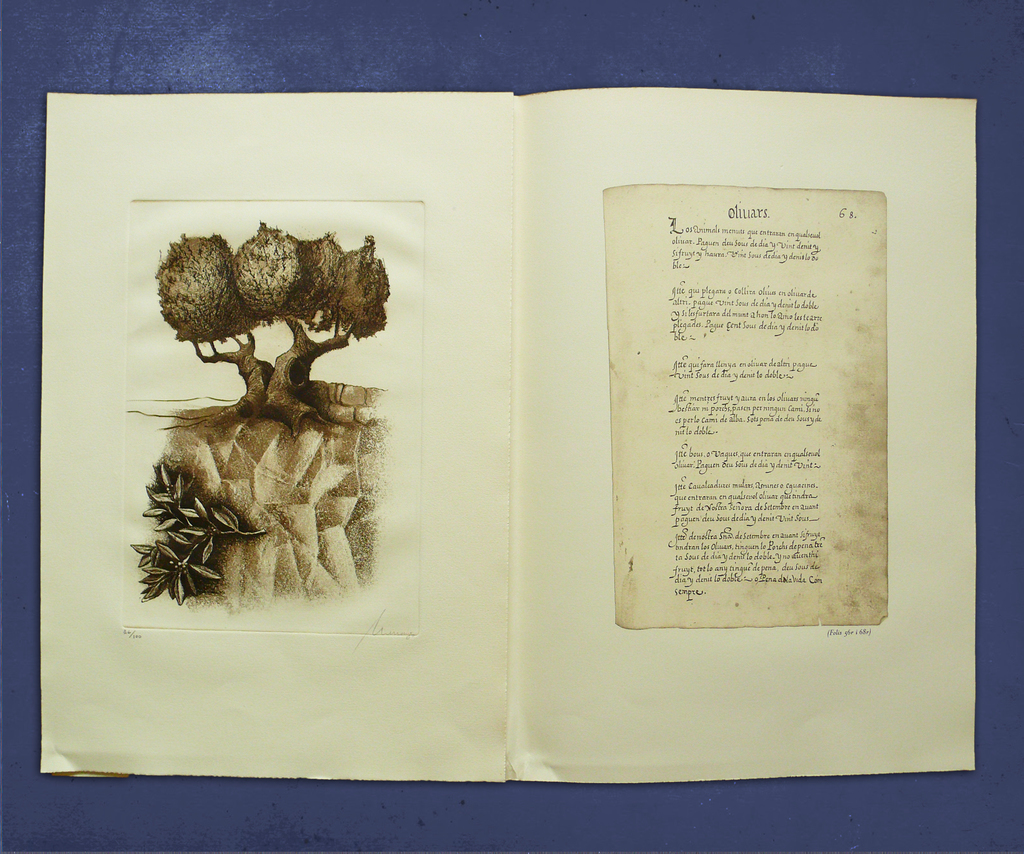 Oliuars.
68.
Los Animals menuts que entraran en qualseuol
oliuar. Paguen deu sous de dia y vint de nit y
si fruyt y haura. Vint sous de dia y de nit lo do
ble
Ite qui plegara o Collira oliues en oliuar de
altri, pague vint sous de dia y de nit lo doble
y si les furtara del munt Ahon lo Amo les te arre
plegades. Pague Cent sous de dia y de nit lo do
ble
Ite qui fara llenya en oliuar de altri pague
vint sous de dia y de nit lo doble
Ite mentres fruyt y aura en los oliuars ningu
bestiar ni porchs, passen per ningun Cami, si no
es per lo Cami de alba. Sots pena de deu sous y de
nit lo doble
Ite bous, o Vaques, que entraran en qualseuol
oliuar. Paguen deu sous de dia y de nit Vint
Ite Caualcadures mulars, o eguasines,
que entraran en qualseuol oliuar que tindra
fruyt de Nostra Señora de Setembre en auant
paguen deu sous de dia y de nit Vint sous
Ite de nostra Sra. de Setembre en auant si fruyt
tindran los Oliuars, tinguen lo Porchs de pena tre
ta sous de dia y de nit lo doble. y no
fruyt, tot lo any tingue de pena, deu sous de
dia y de nit lo doble Pena Vida Com
sempre.
(Folis 56v i 68r)